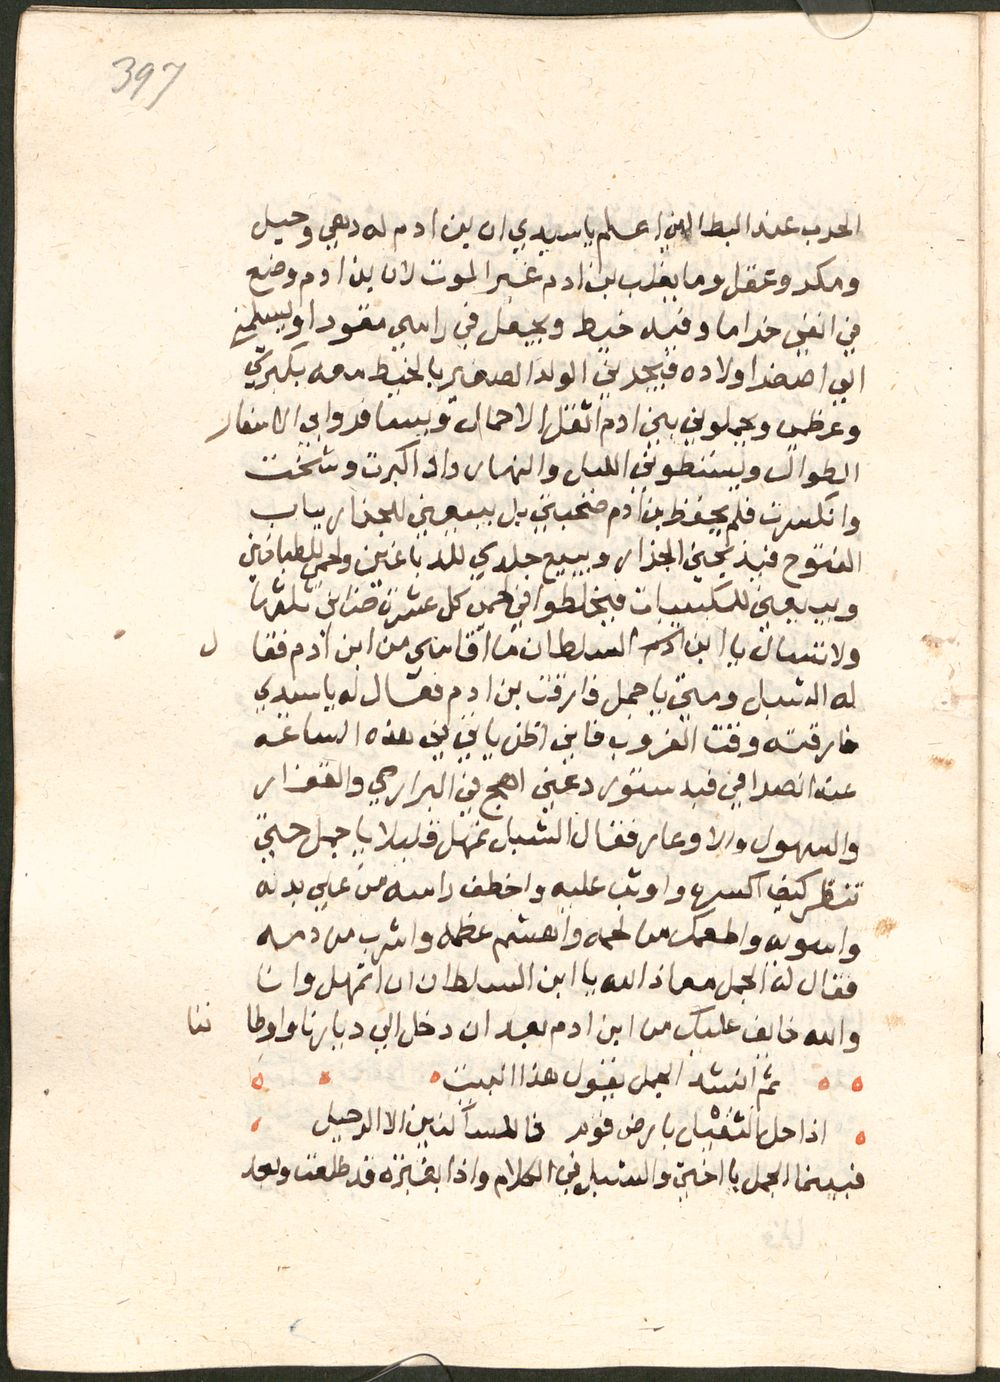 397
الحرب عند البطالين اعلم ياسيدي ان بن ادم له دهي وحيل
ومكر وعقل وما يغلب بن ادم غير الموت لان بن ادم وضع
في انفي خزاما وفيه خيط ويجعل في راسي مقودا ويسلمني
الي اصغر اولاده فيجرني الولد الصغير بالخيط معه بكبرتي
وعظمي ويحملوني بني ادم اثقل الاحمال ويسافروا بي الاسفار
الطوال ويستشطوني الليل والنهار واذا كبرت وشخت
وانكسرت فلم يحفظ بن ادم صحبتي بل يبيعني للجزار بباب
الفتوح فيذبحني الجزار ويبيع جلدي للدباغين ولحمي للطباخين
ويبيعني للكبيبات فيخلطوا في لحمي كل عشرة
ولا تسال يا ابن السلطان ما اقاسي من ابن ادم فقال
له الشبل ومتي يا جمل فارقت بن ادم فقال له ياسيدي
فارقته وقت الغروب فاني اظن ياتي في هذه الساعة
عند انصرافي فبدستور دعني اهج في البراري والقفار
والسهول والاوعار فقال الشبل تمهل قليلا يا جمل حتي
تنظر كيف اكسره واوثب عليه واخطف راسه من علي بدنه
واسويه واطعمك من لحمه وانهشم عظمه واشرب من دمه
فقال له الجمل معاذ الله يا ابن السلطان ان اتمهل وانا
والله خايف عليك من ابن ادم بعد ان دخل الي ديارنا واوطاننا
ثم انشد الجمل يقول هذا البيت
اذا حل الثقيل بارض قوم فما للساكنين الا الرحيل
فبينما الجمل يا اختي والشبل في الكلام واذا بغبرة قد طلعت وبعد